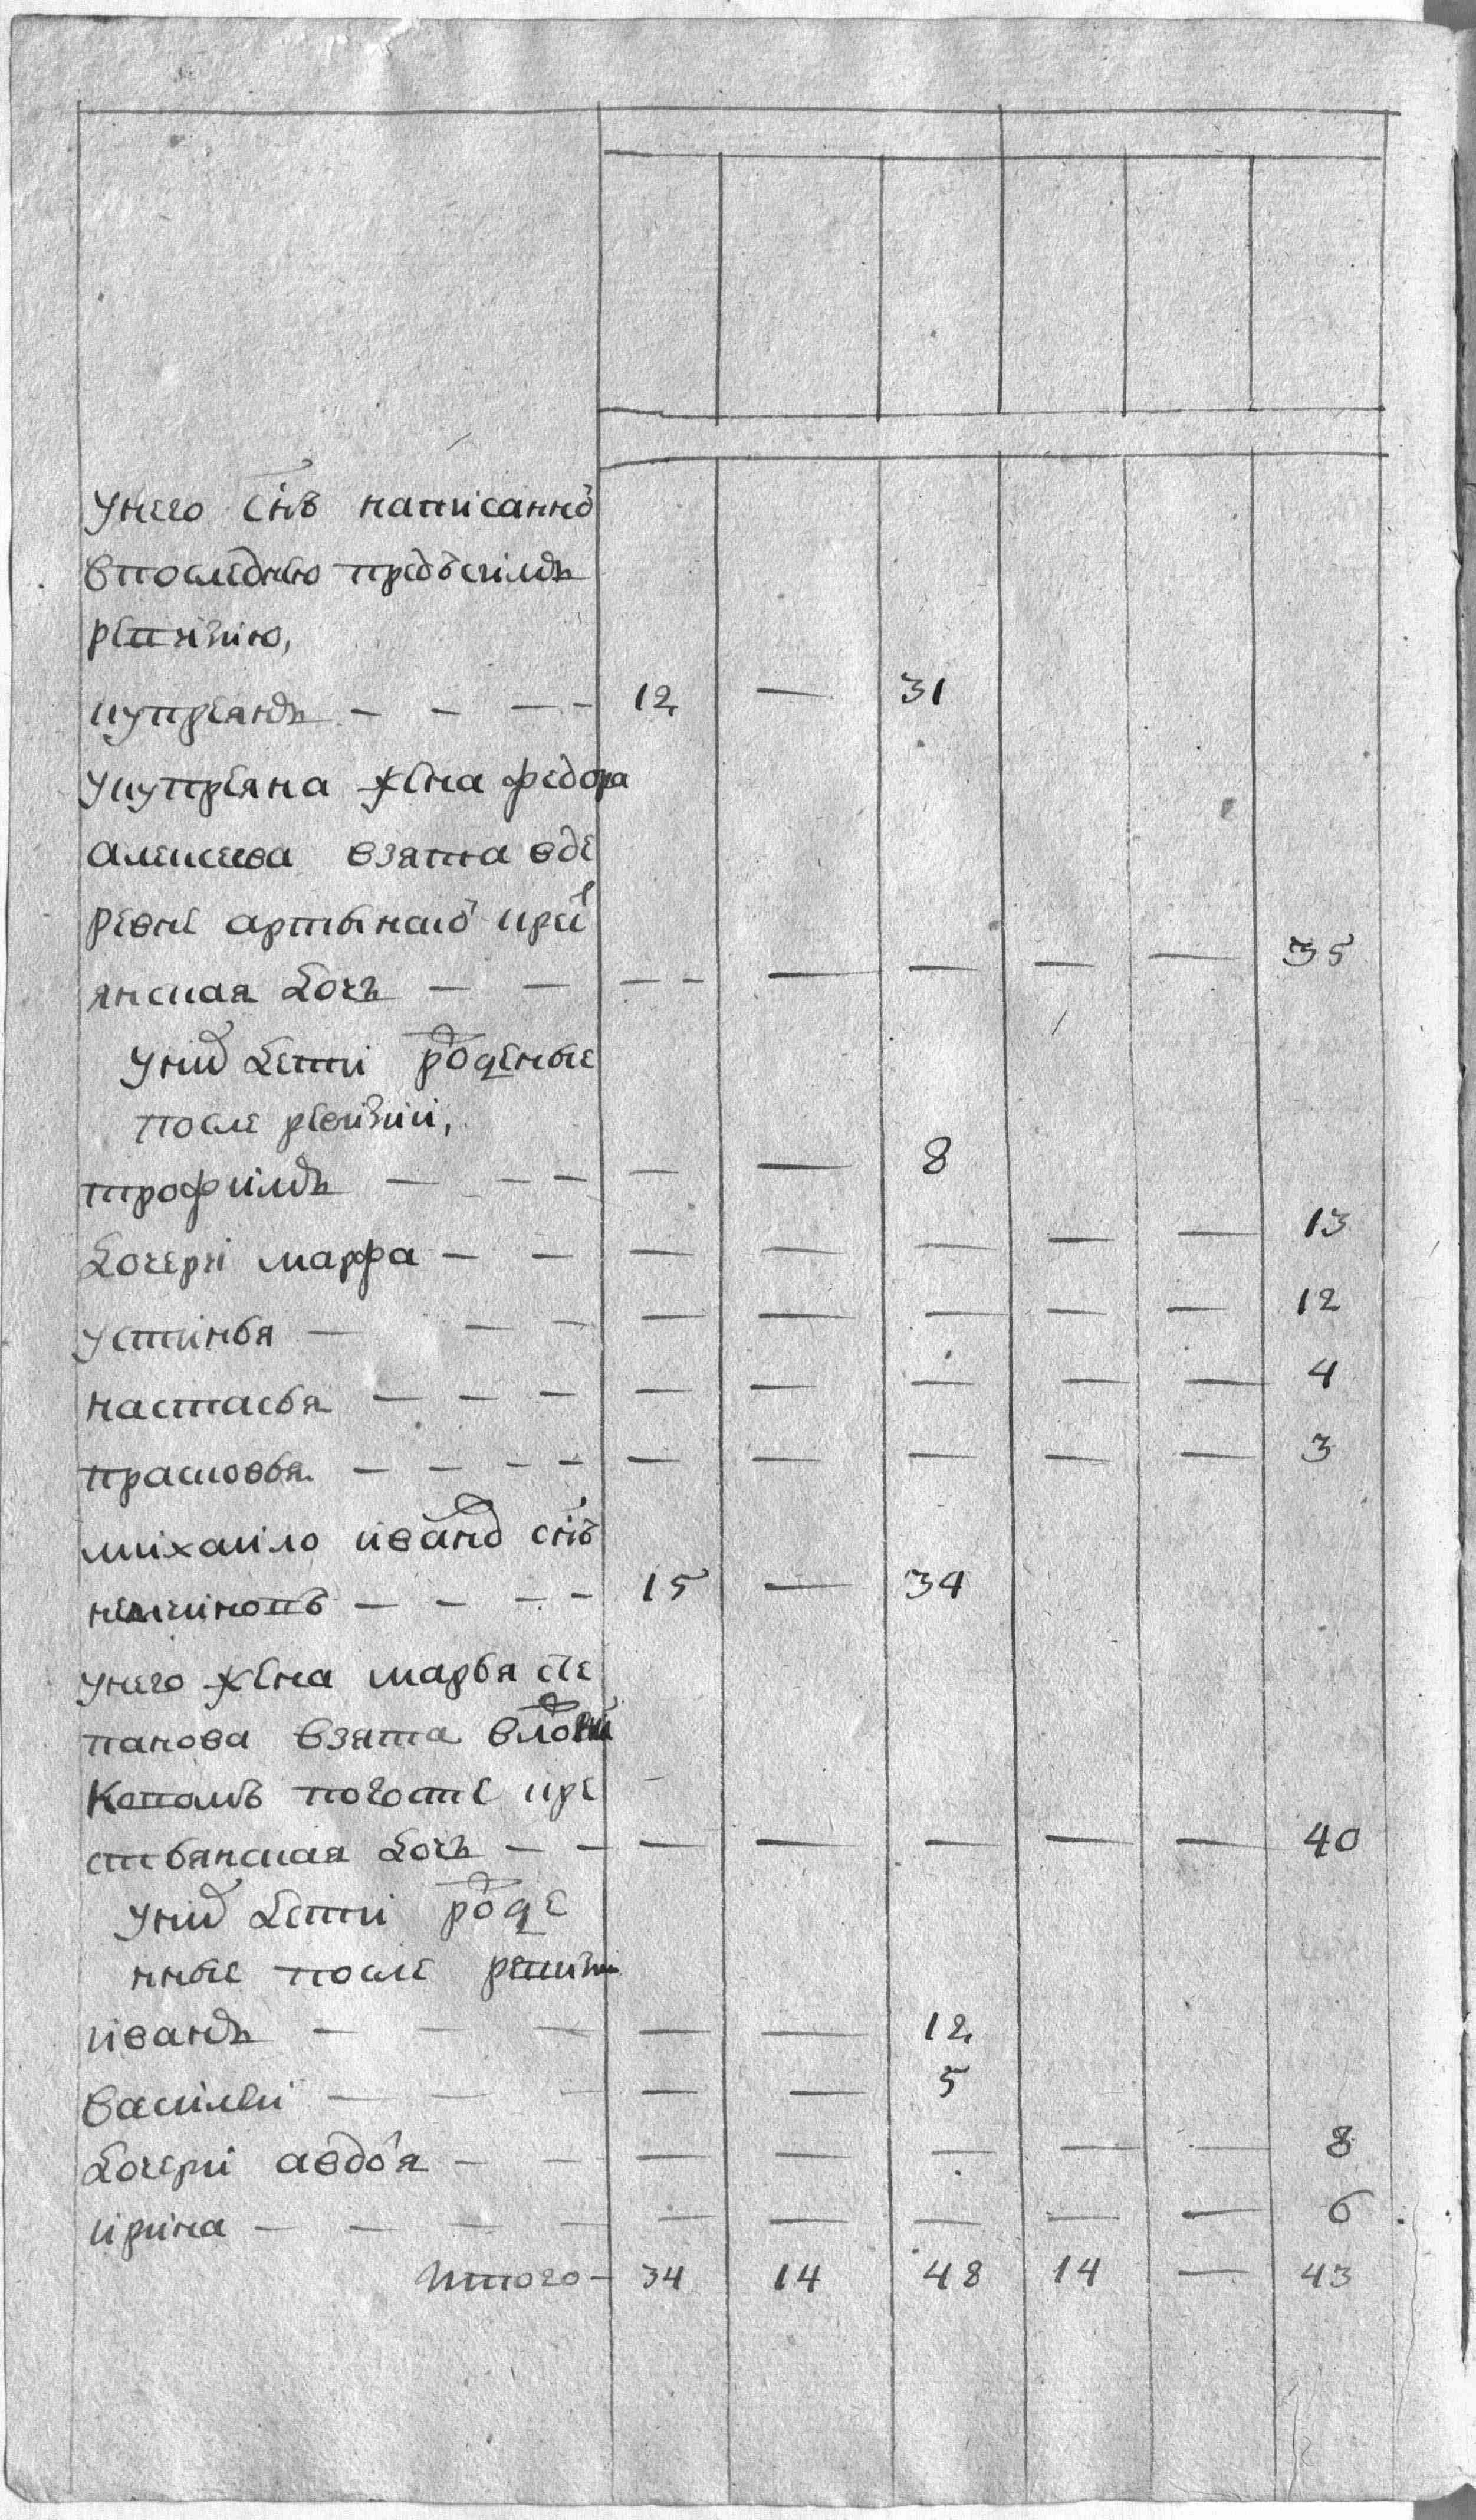 унего снъ написанно
впоследнею предъсимъ
ревизию,
купреянъ — — — — 12 — 31
укупреяна жена федора
алексеева взята вде
ревне артынскои кресть
янская дочь — — — — — — — — — 35
уних дети рожденые
после ревизии,
трофимъ — — — — — — 8
дочери марфа — — — — — — — 13
устинья — — — — — — — — 12
настасья — — — — — — — — 4
прасковья — — — — — — — — — 3
михаило иванов снъ
— — — — 15 — 34
унего жена марья сте
панова взята
погосте кре
стьянская дочь — — — — — — — 40
уних дети рожде
нные после ревизии
иванъ — — — — — 12
василеи — — — — — 5
дочери авдотья — — — — — — — 8
ирина — — — — — — — — — 6
итого — 34 14 48 14 — 43